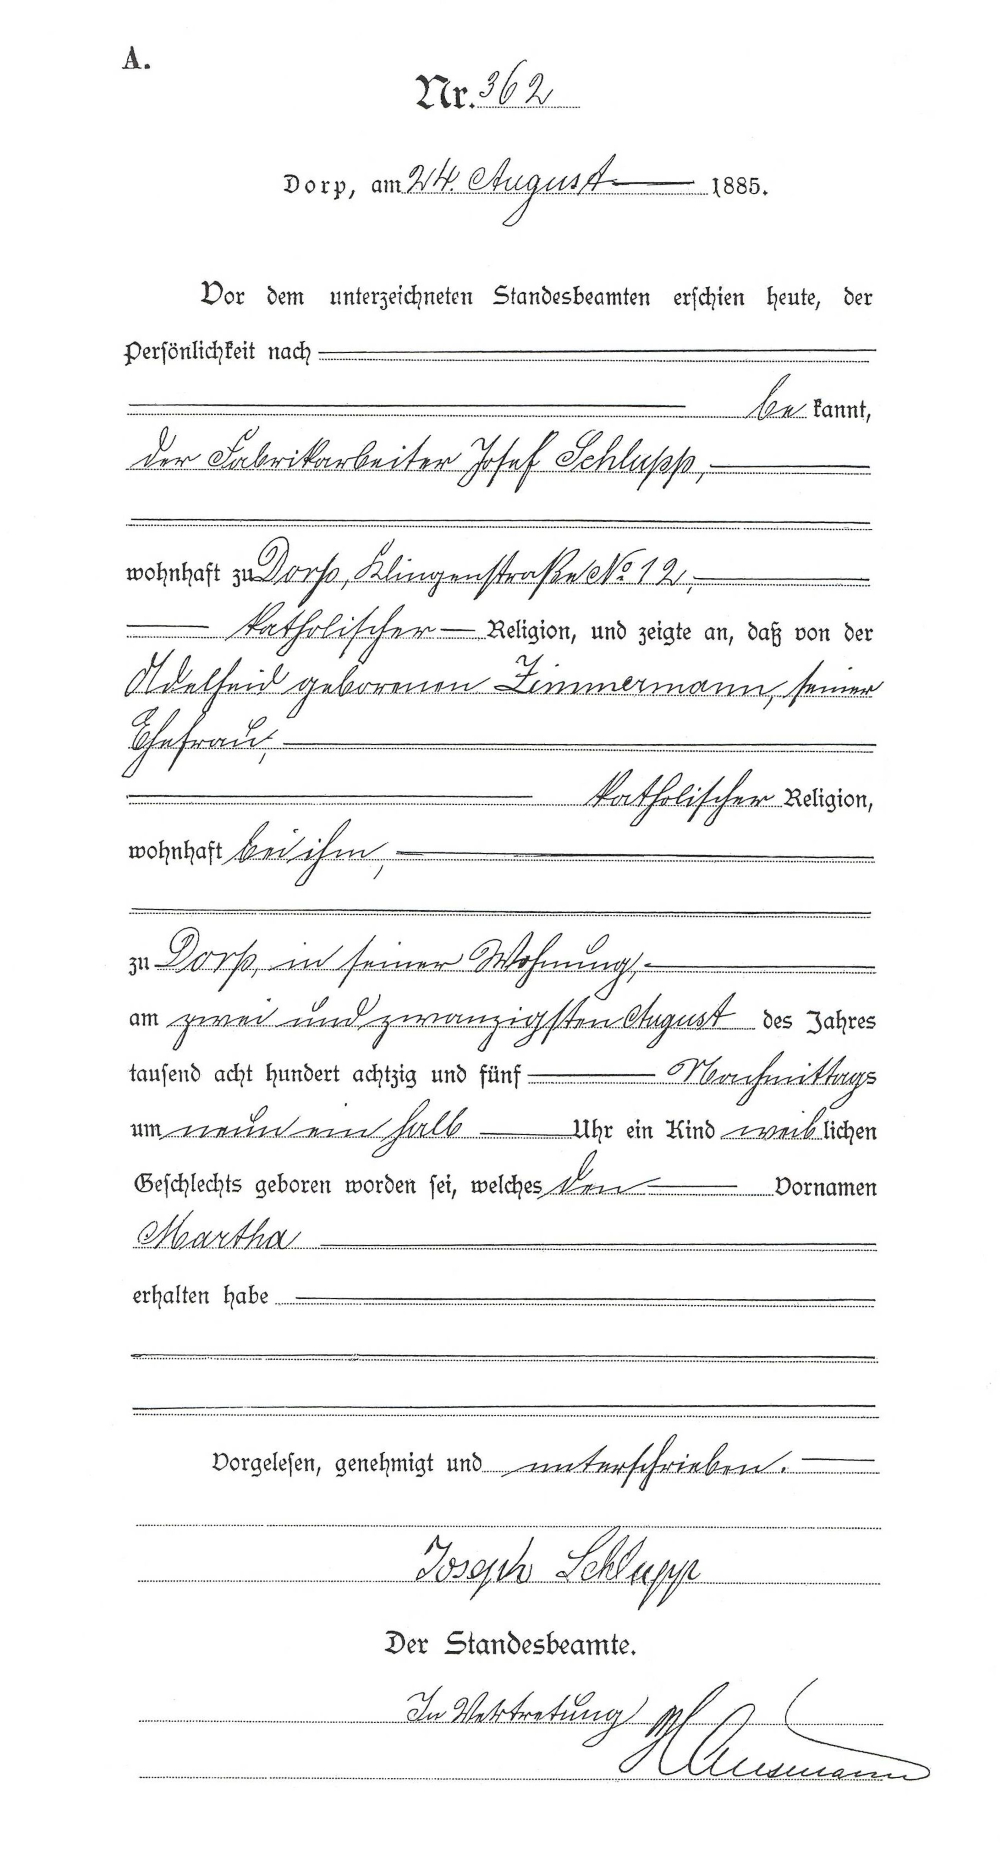 A.
Nr. 362
Dorp, am 24. August 1885.
Vor dem unterzeichneten Standesbeamten erschien heute, der
Persönlichkeit nach
be kannt,
der Fabrikarbeiter Josef Schlupp,
wohnhaft zu Dorp, Klingenstraße No 12,
katholischer Religion, und zeigte an, daß von der
Adelheid geborenen Zimmermann, seiner
Ehefrau,
katholischer Religion,
wohnhaft bei ihm,
zu Dorp, in seiner Wohnung,
am zwei und zwanzigsten August des Jahres
tausend acht hundert achtzig und fünf Nachmittags
um neun ein halb Uhr ein Kind weib lichen
Geschlechts geboren worden sei, welches den Vornamen
Martha
erhalten habe
Vorgelesen, genehmigt und unterschrieben.
Joseph Schlupp
Der Standesbeamte.
In Vertretung